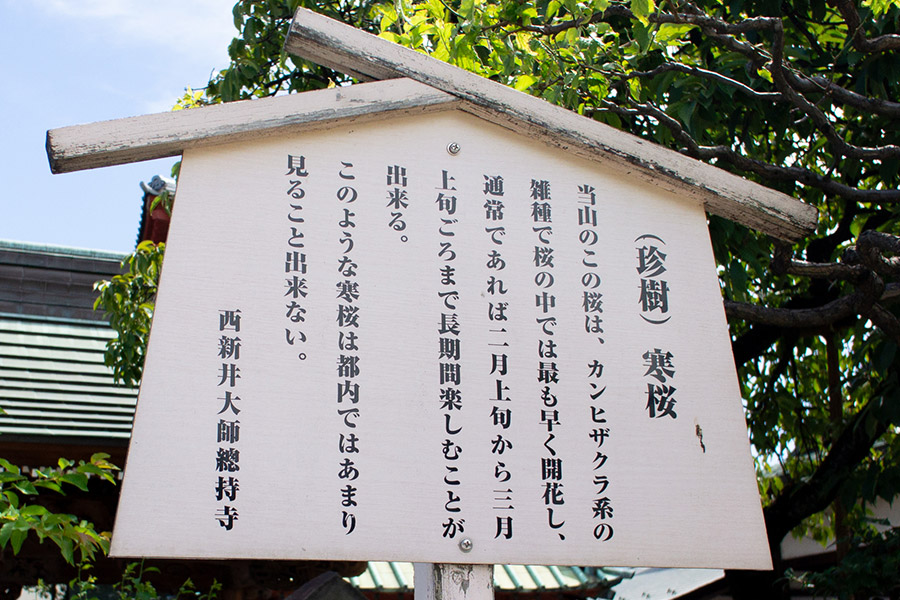 （珍樹）　寒桜
当山のこの桜は、カンヒザクラ系の
雑種で桜の中では最も早く開花し、
通常であれば二月上旬から三月
上旬ごろまで長期間楽しむことが
出来る。
このような寒桜は都内ではあまり
見ること出来ない。
西新井大師總持寺